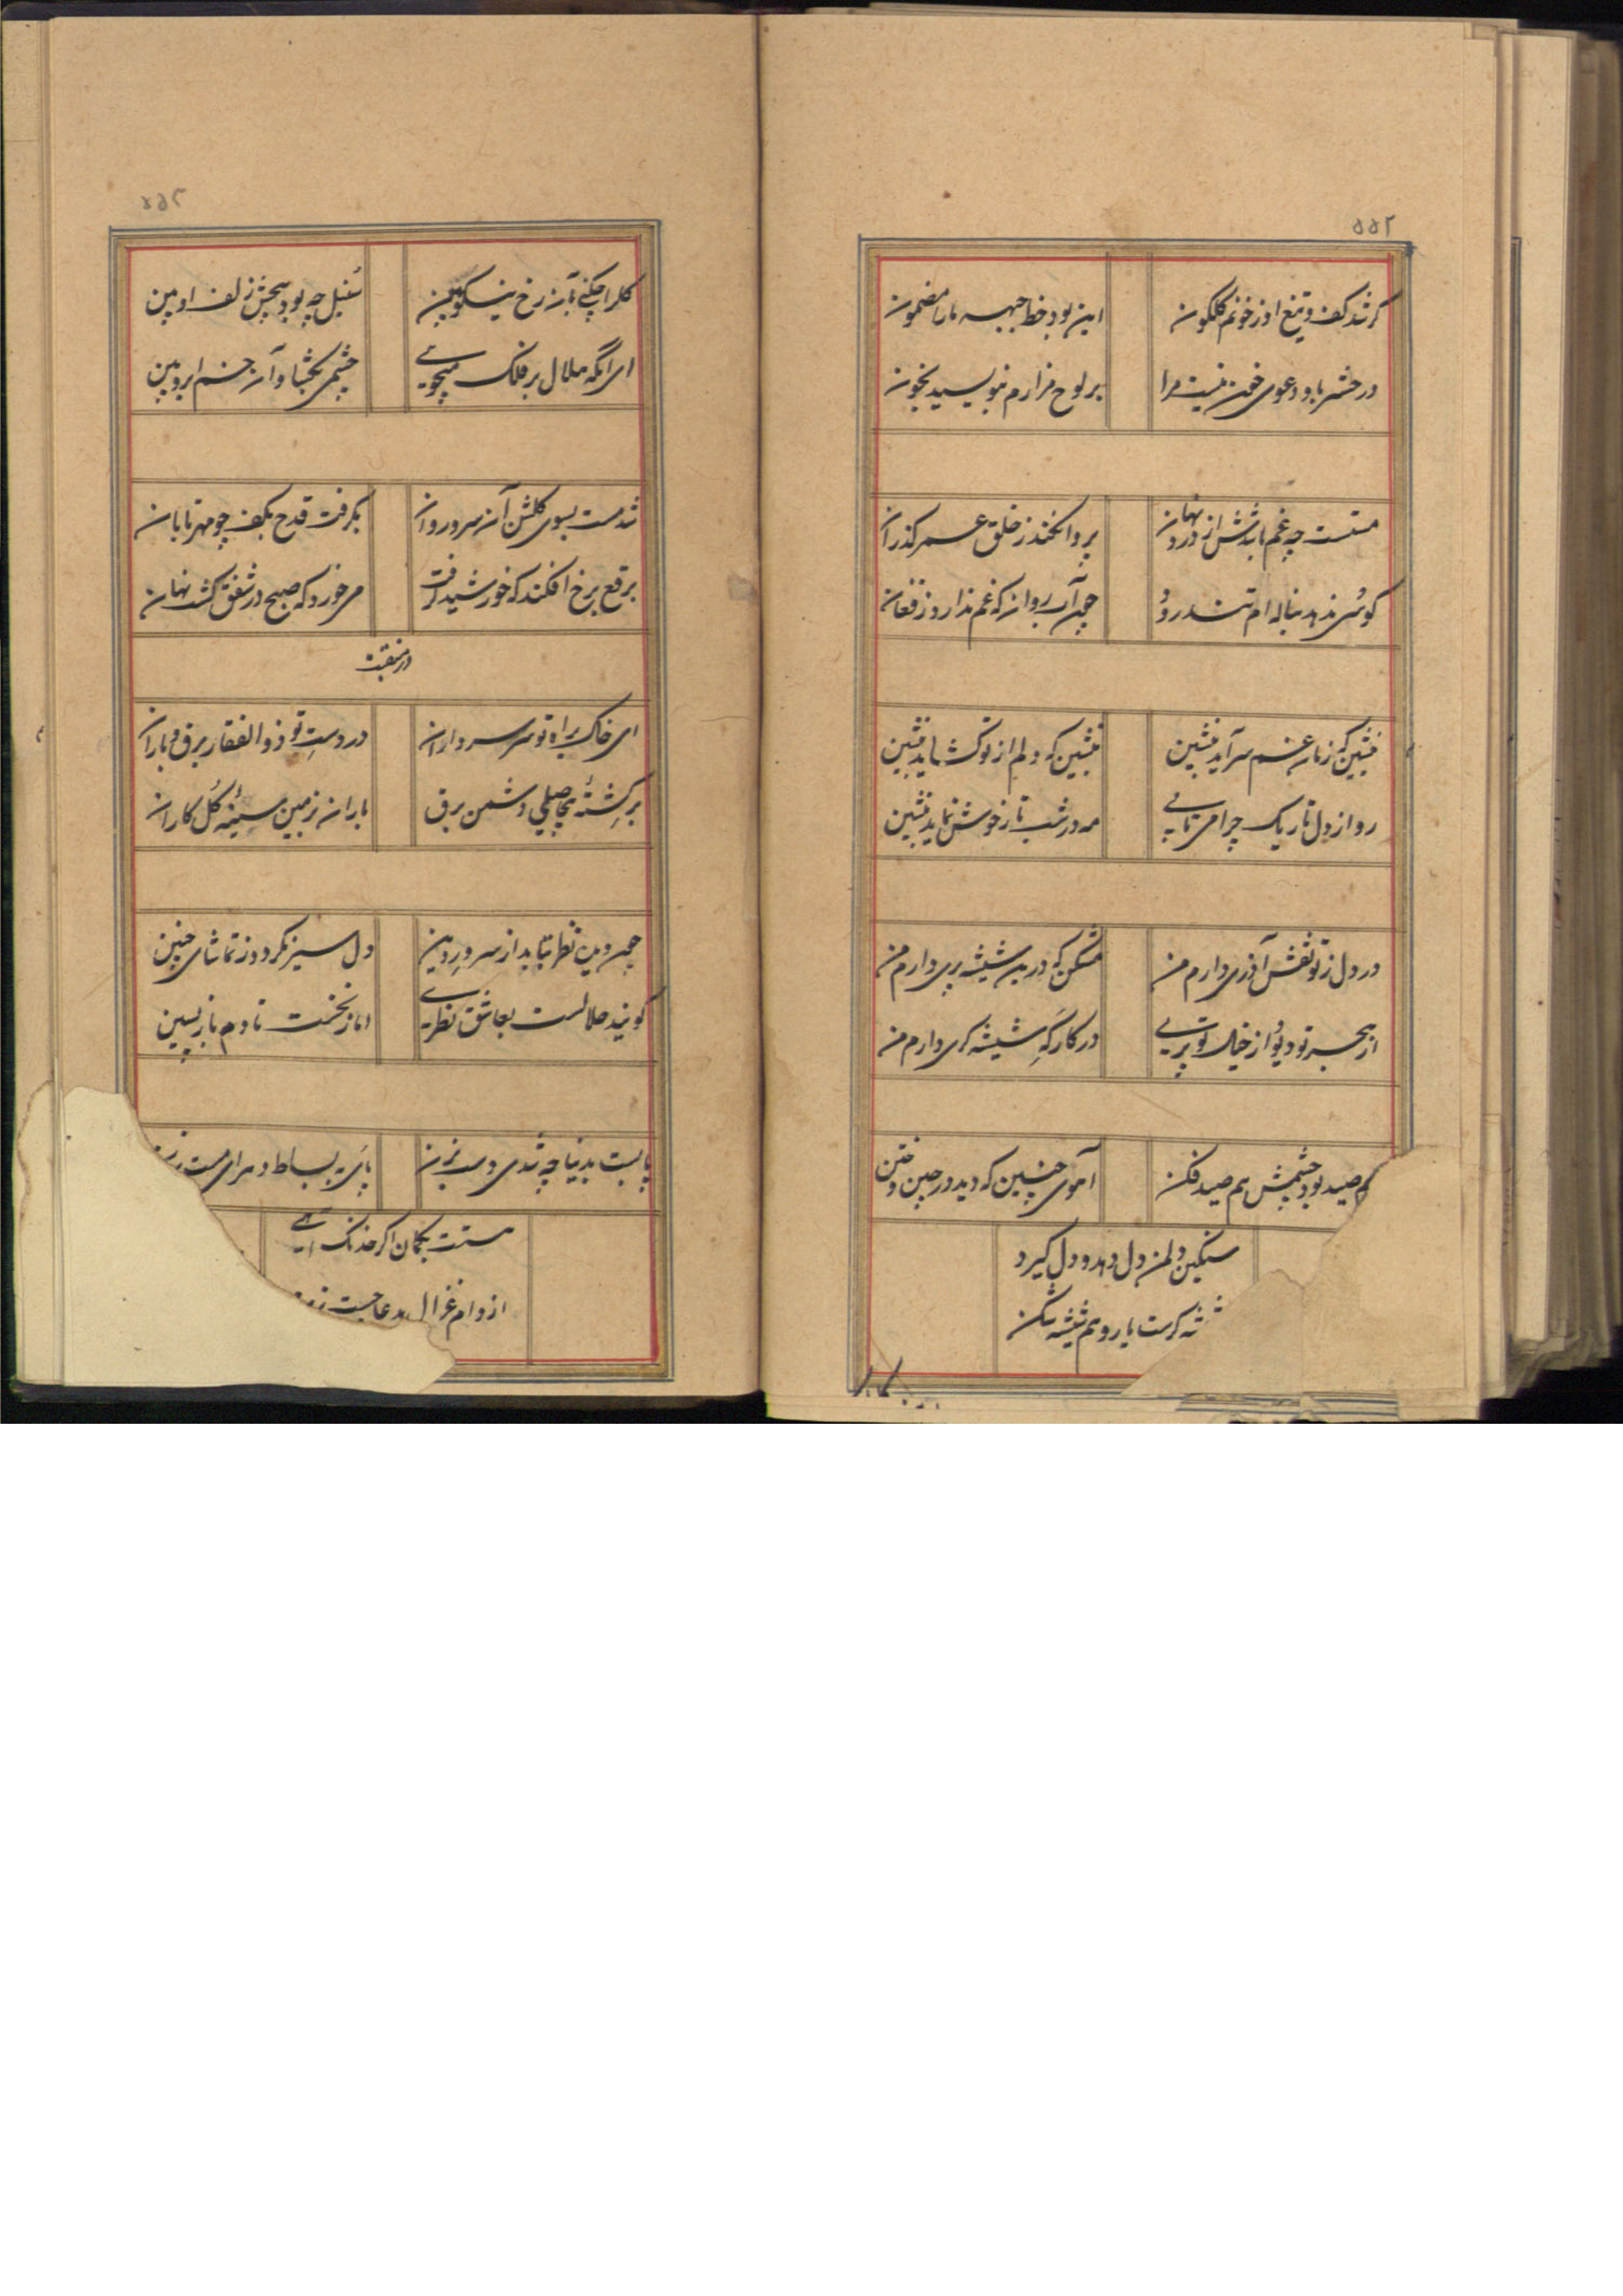 ۵۵۲
گر شد کف و تیغ او ز خونم گلگون
این بود خط جبهه ما را مضمون
در حشر باو دعوی خون نیست مرا
بر لوح مزارم بنویسید بخون
مستست چه غم باشدش از درد نهان
پروا نکند ز خلق عمر گذران
گوشی ندهد بناله ام تندروی
چون آب روان که غم ندارد ز فغان
بنشین که زمان غم سرآید بنشین
بنشین که دلم از تو گشاید بنشین
رو از دل تاریک چرا می تابی
مه در شب تار خوش نماید بنشین
در دل ز تو نقش آذری دارم من
مشکن که درین شیشه پری دارم من
از هجر تو دیو از خیال تو پری
در کارگه شیشه گری دارم من
صید بود چشمش هم صید فکن
آهوی چنین که دید در چین و ختن
سنگین دل من دل دهد و دل گیرد
گرست یار و هم شیشه شکن
گل را چکنی تا به رخ نیکو بین
سنبل چه بود پیچش زلف او بین
ای آنکه هلال بر فلک میجویی
چشمی بگشا و آن خم ابرو بین
شد مست بسوی گلشن آن سرو روان
بگرفت قدح بکف چو مهر تابان
برقع برخ افکند که خورشید گرفت
می خورد که صبح در شفق گشت نهان
در منقبت
ای خاک براه تو سر سرداران
در دست تو ذوالفقار برق و باران
بر کشتهٔ بیحاصلی دشمن برق
باران زمین سینهٔ گل کاران
چون روی نظر نتابد از سرور دین
دل سیر نگردد ز تماشای چنین
گویند حلالست بعاشق نظری
اما ز نخست تا دم بازپسین
پابست بدنیا چه شدی دست بزن
پایی به بساط دهر ای مست بزن
هستت بکمان اگر خدنگ
از دام غزال مدعا جست